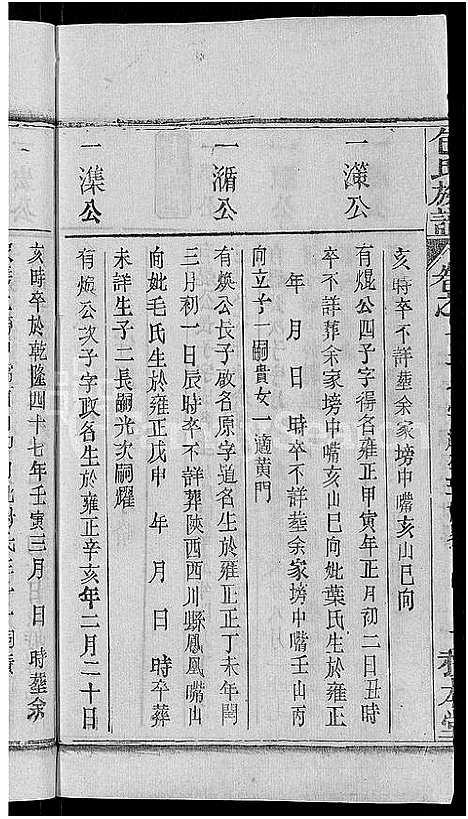 包氏族譜
亥時卒不詳塟余家塝中嘴亥山巳向
一滐公
有焜公四子字得名雍正甲寅年正月初二日丑時
卒不詳葬余家塝中嘴亥山巳向妣葉氏生於雍正
年 月 日 時卒不詳塟余家塝中嘴壬山丙
向立子一嗣貴女一適黃門
一循公
有煥公長子啟名原字道名生於雍正丁未年閏
三月初一日辰時卒不詳葬陝西西川縣鳳凰嘴山
向妣毛氏生於雍正戊申 年 月 日 時卒葬
未詳生子二長嗣光次嗣耀
一漢公
有煥公次子字政名生於雍正辛亥年二月二十日
亥時卒於乾隆四十七年壬寅三月 日 時塟余